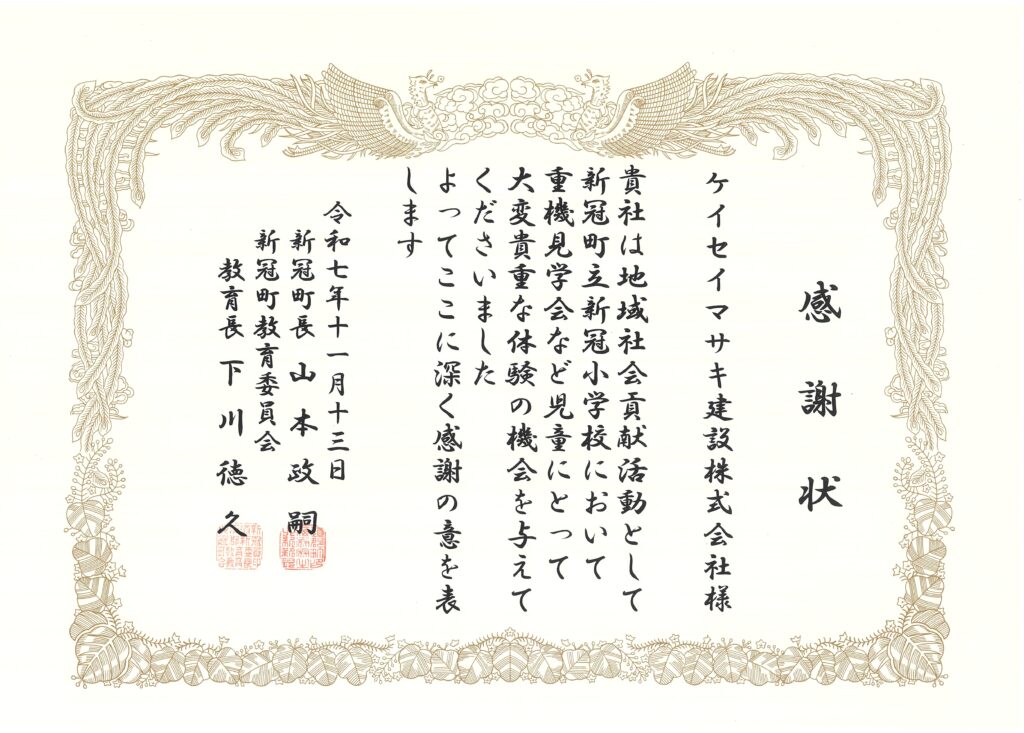 感謝状
ケイセイマサキ建設株式会社様
貴社は地域社会貢献活動として
新冠町立新冠小学校において
重機見学会など児童にとって
大変貴重な体験の機会を与えて
くださいました
よってここに深く感謝の意を表
します
令和七年十一月十三日
新冠町長 山本政嗣
新冠町教育委員会
教育長 下川徳久